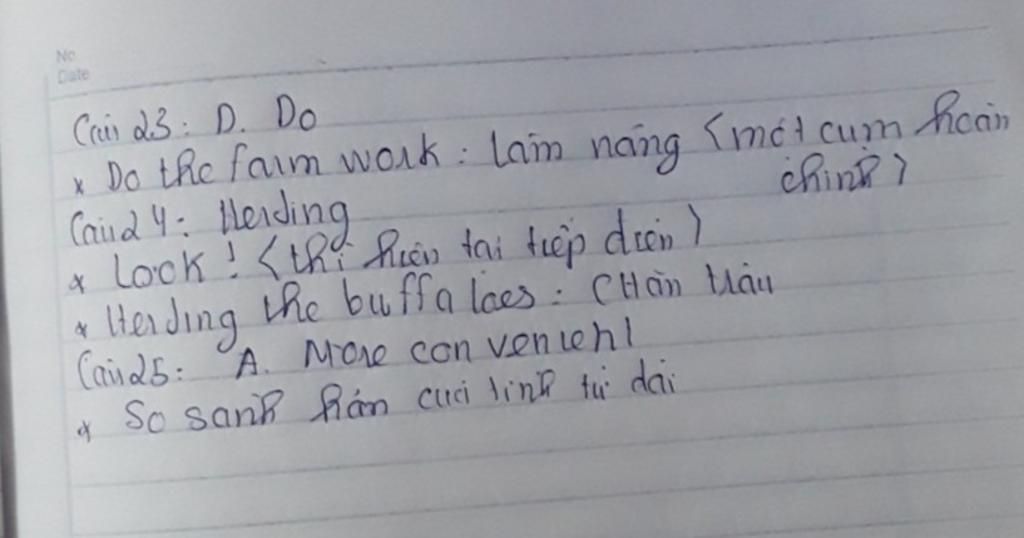 No
Date
Câu 23: D. Do
* Do the farm work: làm nông (một cụm hoàn
chỉnh)
Câu 24: Herding
* Look! (thì hiện tại tiếp diễn)
* Herding the buffaloes: Chăn trâu
Câu 25: A. More convenient
* So sánh hơn của tính từ dài